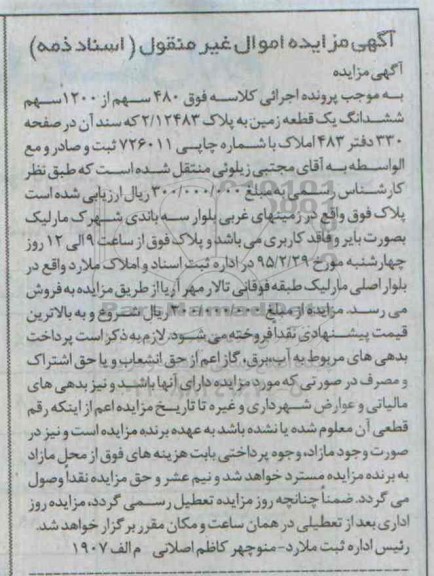 آگهی مزایده اموال غیر منقول (اسناد ذمه)
آگهی مزایده
به موجب پرونده اجرائی کلاسه فوق ۴۸۰ سهم از ۱۲۰۰ سهم
ششدانگ یک قطعه زمین به پلاک ۲/۱۲۴۸۳ که سند آن در صفحه
۳۳۰ دفتر ۴۸۳ املاک با شماره چاپی ۷۲۶۰۱۱ ثبت و صادر و مع
الواسطه به آقای مجتبی زیلوئی منتقل شده است که طبق نظر
کارشناس رسمی به مبلغ ۳۰۰/۰۰۰/۰۰۰ ریال ارزیابی شده است
پلاک فوق واقع در زمینهای غربی بلوار سه باندی شهرک مارلیک
بصورت بایر و فاقد کاربری می باشد و پلاک فوق از ساعت ۹ الی ۱۲ روز
چهارشنبه مورخ ۹۵/۲/۲۹ در اداره ثبت اسناد و املاک ملارد واقع در
بلوار اصلی مارلیک طبقه فوقانی تالار مهر آریا از طریق مزایده به فروش
می رسد. مزایده از مبلغ ۳۰۰/۰۰۰/۰۰۰ ریال شروع و به بالاترین
قیمت پیشنهادی نقدا فروخته می شود. لازم به ذکر است پرداخت
بدهی های مربوط به آب، برق، گاز اعم از حق انشعاب و یا حق اشتراک
و مصرف در صورتی که مورد مزایده دارای آنها باشد و نیز بدهی های
مالیاتی و عوارض شهرداری و غیره تا تاریخ مزایده اعم از اینکه رقم
قطعی آن معلوم شده یا نشده باشد به عهده برنده مزایده است و نیز در
صورت وجود مازاد، وجوه پرداختی بابت هزینه های فوق از محل مازاد
به برنده مزایده مسترد خواهد شد و نیم عشر و حق مزایده نقداً وصول
می گردد. ضمناً چنانچه روز مزایده تعطیل رسمی گردد، مزایده روز
اداری بعد از تعطیلی در همان ساعت و مکان مقرر برگزار خواهد شد.
رئیس اداره ثبت ملارد-منوچهر کاظم اصلانی م الف ۱۹۰۷